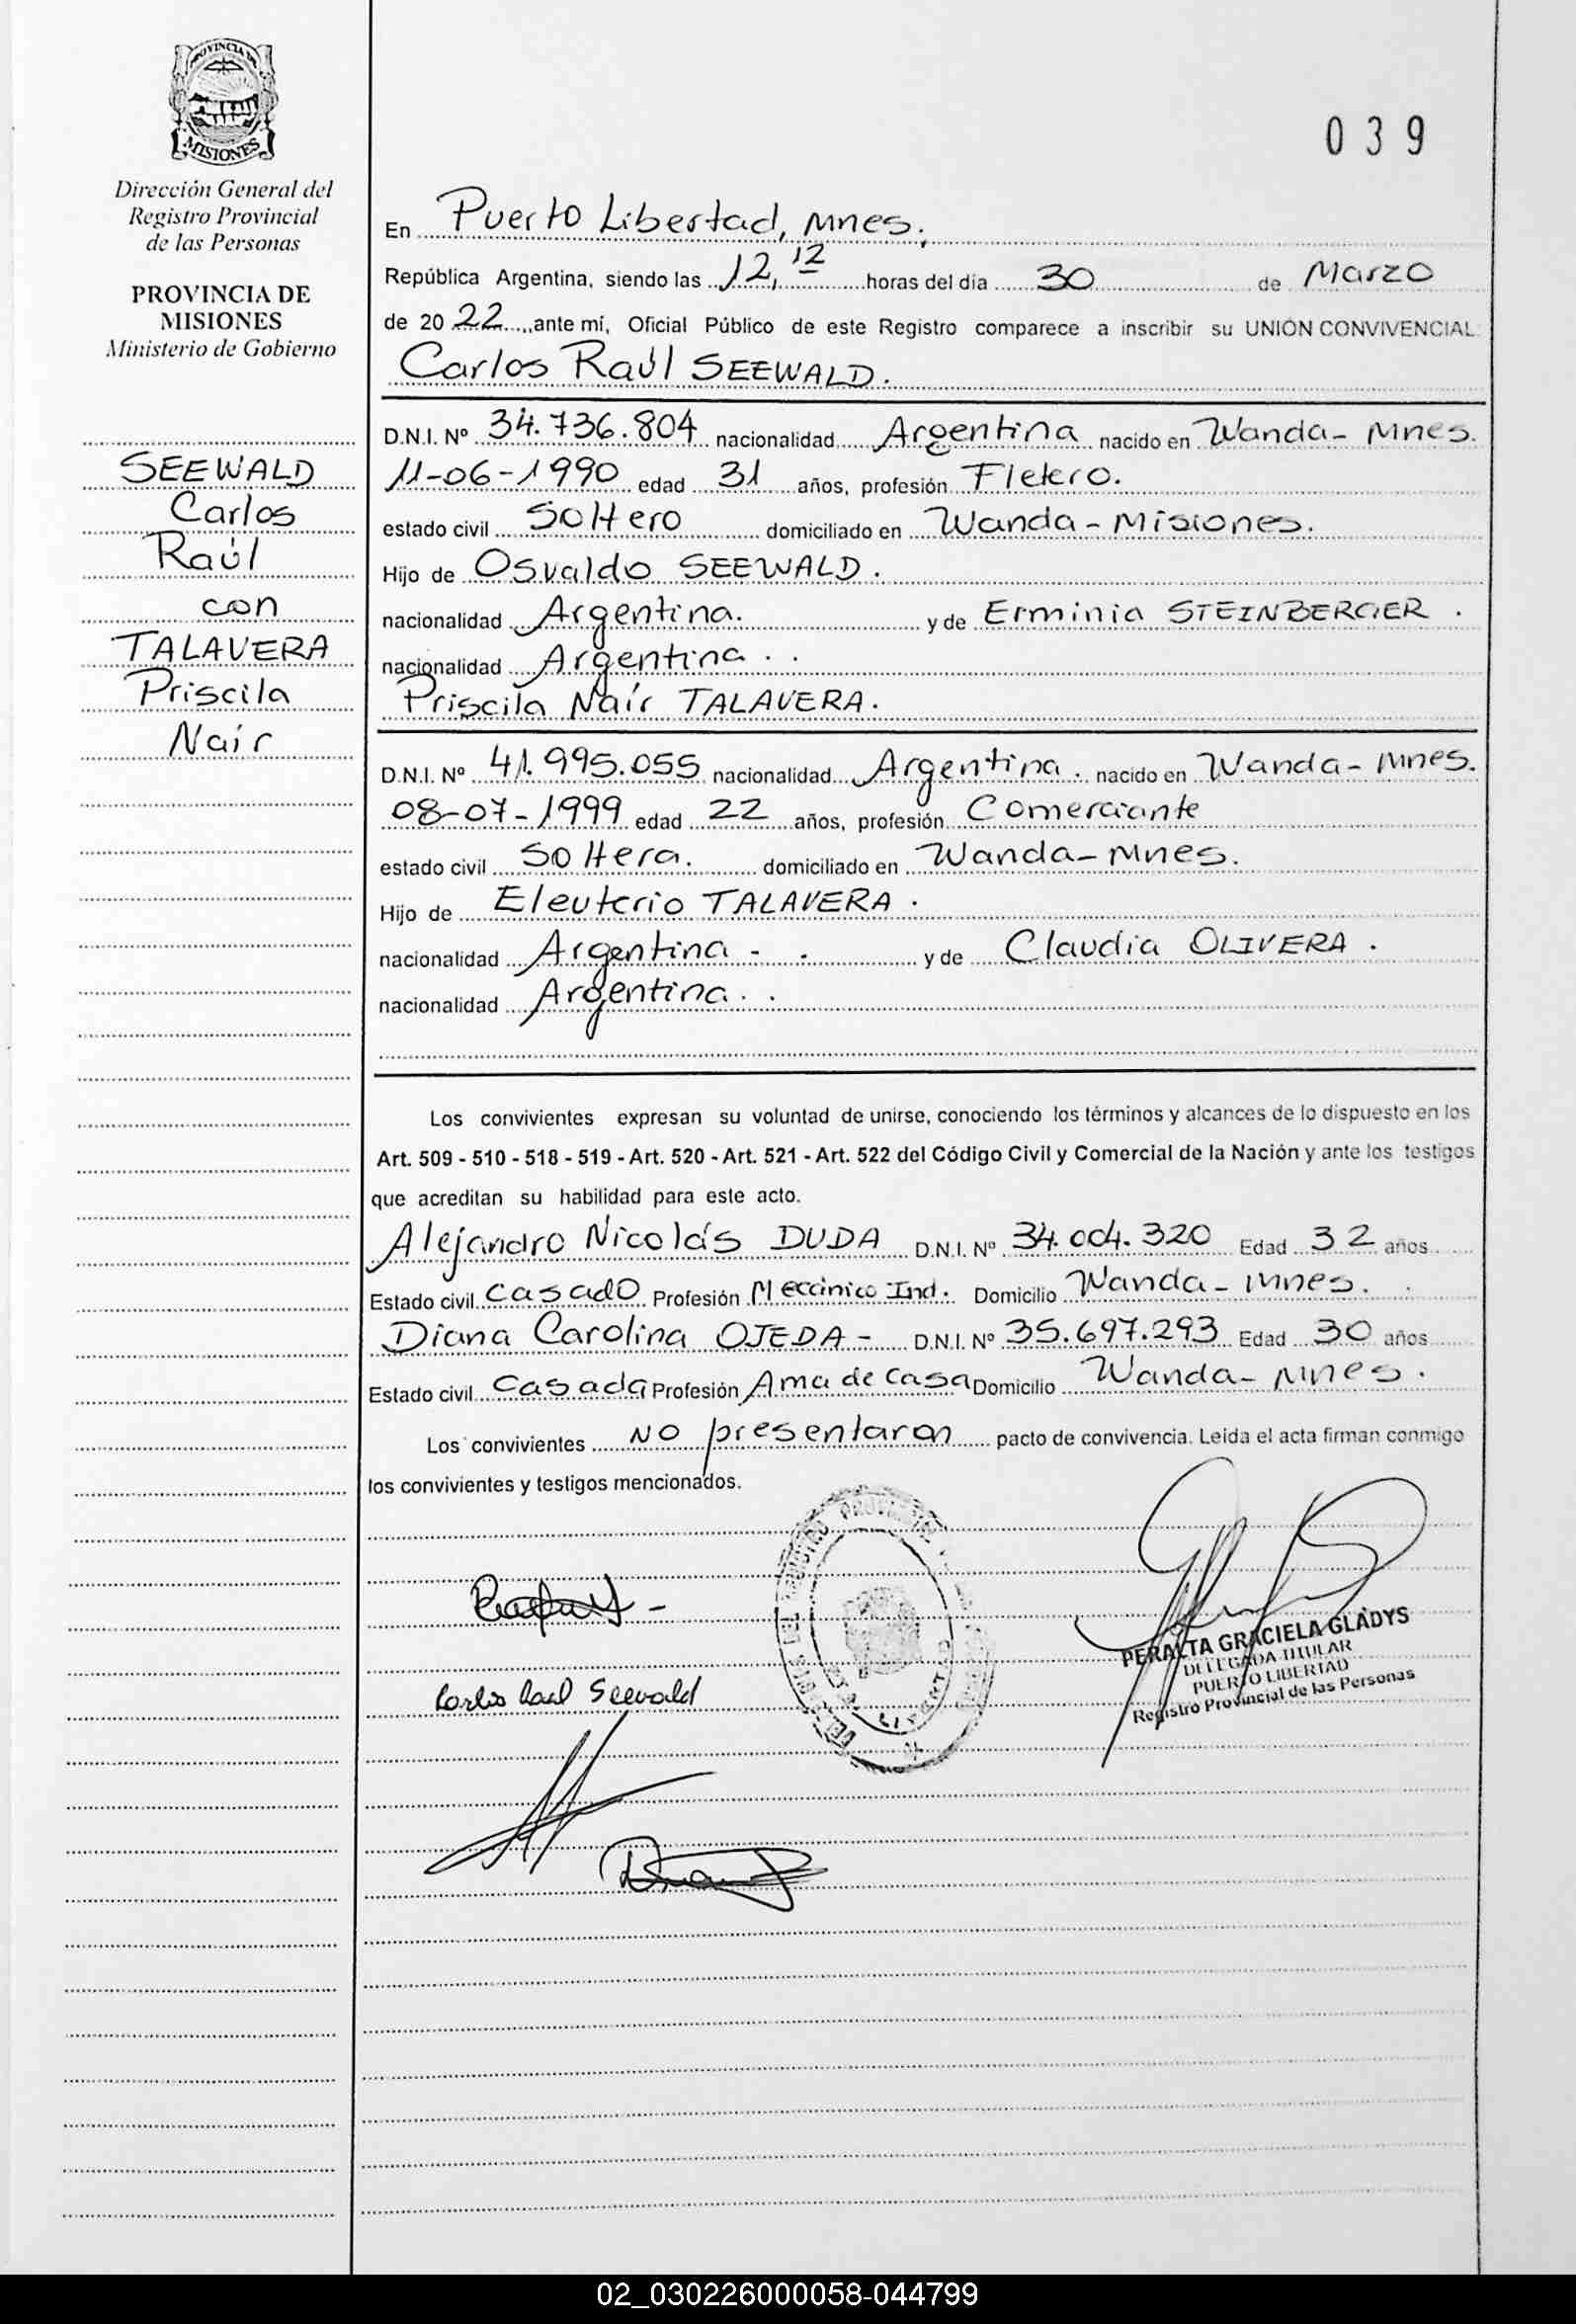 PROVINCIA DE
MISIONES
Dirección General del
Registro Provincial
de las Personas
PROVINCIA DE
MISIONES
Ministerio de Gobierno
SEEWALD
Carlos
Raúl
con
TALAVERA
Priscila
Nair
039
En Puerto Libertad, Mnes.
República Argentina, siendo las 12,12 horas del día 30 de Marzo
de 20 22, ante mí, Oficial Público de este Registro comparece a inscribir su UNIÓN CONVIVENCIAL:
Carlos Raúl SEEWALD.
D.N.I. Nº 34.736.804 nacionalidad Argentina nacido en Wanda - Mnes.
11-06-1990 edad 31 años, profesión Fletero.
estado civil Soltero domiciliado en Wanda - Misiones.
Hijo de Osvaldo SEEWALD.
nacionalidad Argentina. y de Erminia STEINBERGER.
nacionalidad Argentina..
Priscila Naír TALAVERA.
D.N.I. Nº 41.995.055 nacionalidad Argentina. nacido en Wanda - Mnes.
08-07-1999 edad 22 años, profesión Comerciante
estado civil Soltera. domiciliado en Wanda - Mnes.
Hijo de Eleuterio TALAVERA.
nacionalidad Argentina - . y de Claudia OLIVERA.
nacionalidad Argentina..
Los convivientes expresan su voluntad de unirse, conociendo los términos y alcances de lo dispuesto en los
Art. 509 - 510 - 518 - 519 - Art. 520 - Art. 521 - Art. 522 del Código Civil y Comercial de la Nación y ante los testigos
que acreditan su habilidad para este acto.
Alejandro Nicolás DUDA D.N.I. Nº 34.004.320 Edad 32 años
Estado civil Casado Profesión Mecánico Ind. Domicilio Wanda - Mnes.
Diana Carolina OJEDA - D.N.I. Nº 35.697.293 Edad 30 años
Estado civil Casada Profesión Ama de Casa Domicilio Wanda - Mnes.
Los convivientes NO presentaron pacto de convivencia. Leída el acta firman conmigo
los convivientes y testigos mencionados.
Carlos Raul Seewald
PERALTA GRACIELA GLADYS
DELEGADA TITULAR
PUERTO LIBERTAD
Registro Provincial de las Personas
02_030226000058-044799